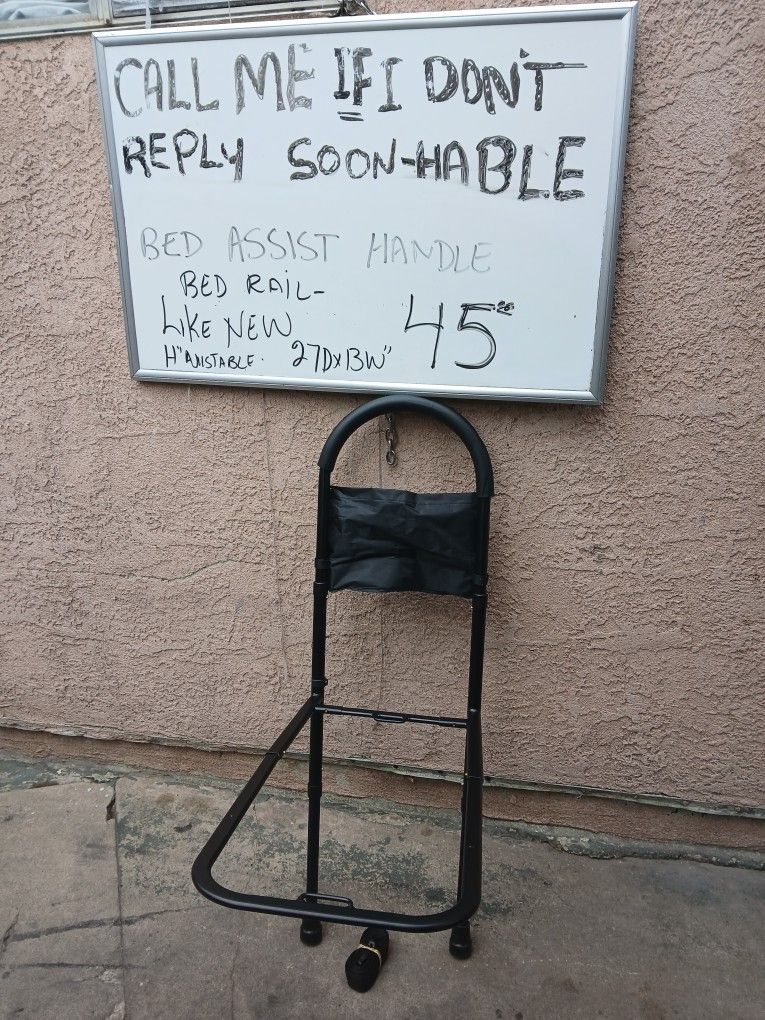 CALL ME IF I DON'T
REPLY SOON-HABLE
BED ASSIST HANDLE
BED RAIL-
LIKE NEW 45⁰⁰
H" 27DX13W"